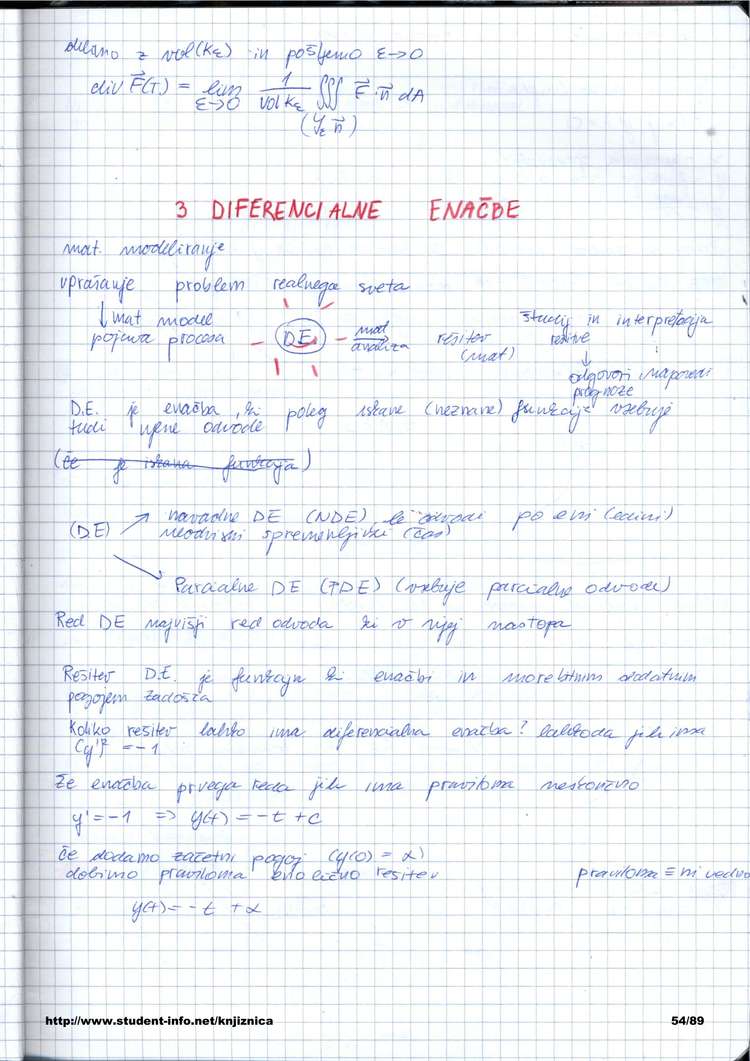 delamo z vol(Kε) in pošljemo ε→0
div F⃗(T₀) = lim ε→0 1/vol Kε ∭ F⃗·n⃗ dA
(Yε n⃗)
3 DIFERENCIALNE ENAČBE
mat. modeliranje
vprašanje problem realnega sveta
↓ mat model
pojava procesa
DE
mat analiza
rešitev (mat)
študij in interpretacija
rešitve
↓
odgovori napovedi
prognoze
D.E. je enačba, ki poleg iskane (neznane) funkcije vsebuje
tudi njene odvode
(če je iskana funkcija)
(DE) ↗ navadne DE (NDE), le odvodi po eni (edini)
neodvisni spremenljivki (čas)
↘ Parcialne DE (PDE) (vsebuje parcialne odvode)
Red DE najvišji red odvoda ki v njej nastopa
Rešitev D.E. je funkcija ki enačbi in morebitnim dodatnim
pogojem zadošča
Koliko rešitev lahko ima diferencialna enačba? lahko da jih ima
(y')² = -1
Že enačba prvega reda jih ima praviloma neskončno
y' = -1 ⇒ y(t) = -t + c
če dodamo začetni pogoj (y(0) = α)
dobimo praviloma eno ločno rešitev
praviloma ≡ ni vedno
y(t) = -t + α
http://www.student-info.net/knjiznica
54/89